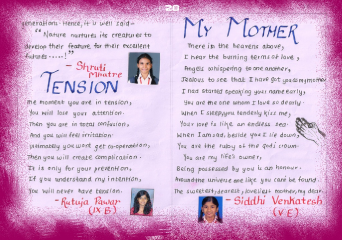 28
generations. Hence, it is well said -
"Nature nurtures its creatures to
develop their feature, for their excellent
future ......!"
- Shruti
Mhatre
TENSION
The moment you are in tension,
You will lose your attention.
Then you are in total confusion,
And you will feel irritation.
Ultimately you wont get co-operation,
Then you will create complication.
It is only for your prevention,
If you understand my intention,
You will never have tension.
- Rutuja Pawar
(IX B)
MY MOTHER
There in the heavens above,
I hear the bunting terms of love,
Angels whispering to one another,
Jealous to see that I have got you as my mother
I had started speaking your name early,
You are the one whom I love so dearly.
When I sleep you tenderly kiss me,
Your love is like an endless sea.
When I am sad, beside you I lie down,
You are the ruby of the god's crown.
You are my life's owner,
Being possessed by you is an honour.
Around the universe are like you can't be found.
The sweetest, dearest, loveliest mother, my dear.
- Siddhi Venkatesh
(V E)